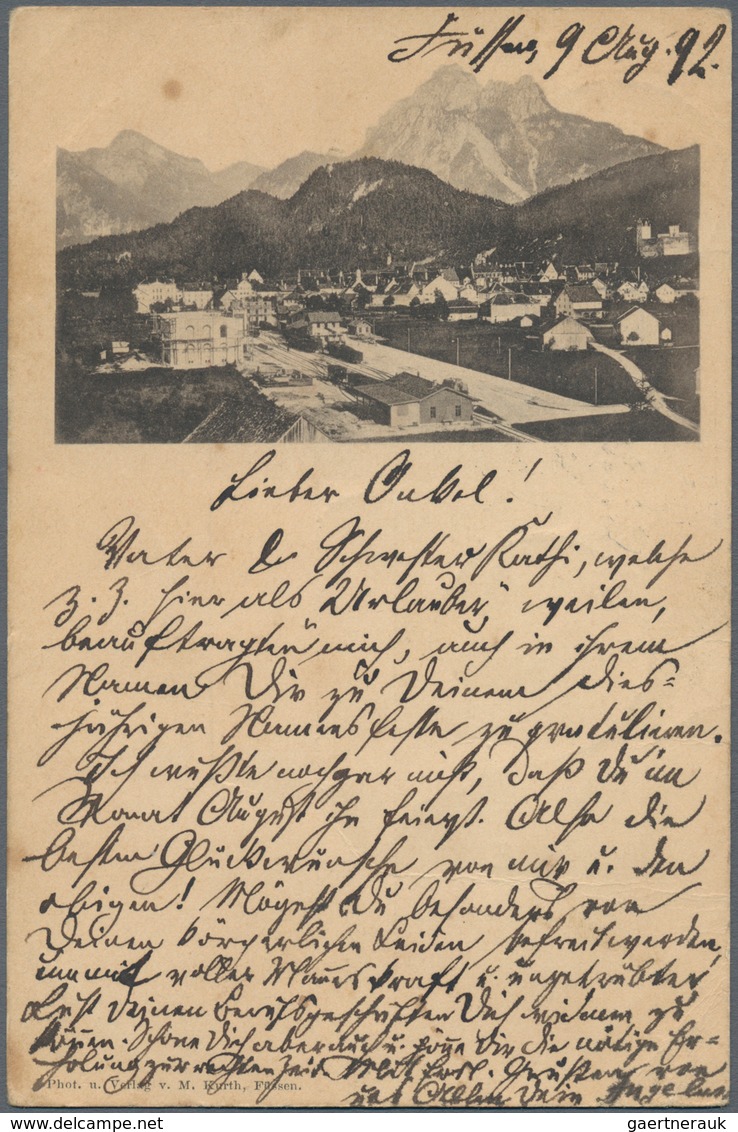 Füssen, 9 Aug. 92.
Lieber Onkel!
Vater & Schwester Kathi, welche
z. Z. hier als „Urlauber" weilen,
beauftragten mich, auch in ihrem
Namen Dir zu Deinem dies-
jährigen Namensfeste zu gratulieren.
Ich wußte noch gar nicht, daß Du im
Monat August ihn feierst. Also die
besten Glückwünsche von mir u. den
obigen! Mögest Du besonders von
Deinen körperlichen Leiden befreit werden,
um mit voller Manneskraft u. ungetrübter
Lust Deinen Berufsgeschäften Dich widmen zu
können. Schone Dich aber auch u. gönne Dir die nötige Er-
holung zur rechten Zeit. Mit herzl. Grüßen von
uns Allen Dein
Phot. u. Verlag v. M. Kurth, Füssen.
gaertnerauk